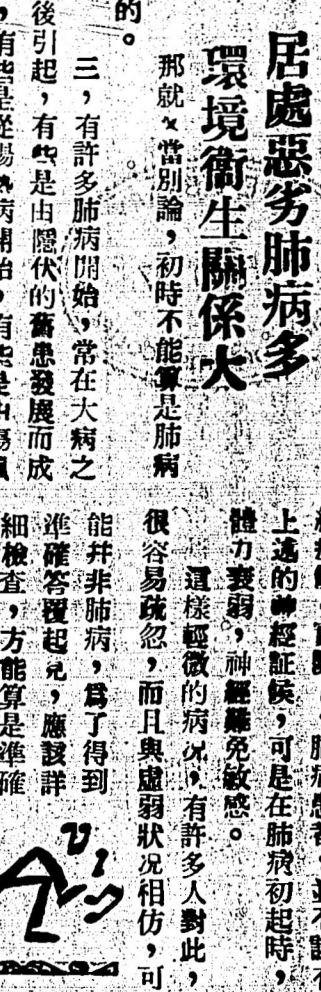 居處惡劣肺病多
環境衞生關係大
的。
那就又當別論，初時不能算是肺病
三，有許多肺病開始，常在大病之
後引起，有些是由隱伏的舊患發展而成
，有些是從腸熱病開始，有些是由傷風
上述的神經証候，可是在肺病初起時，
體力衰弱，神經難免敏感。
這樣輕微的病況，有許多人對此，
很容易疏忽，而且與虛弱狀況相仿，可
能幷非肺病，爲了得到
準確答覆起見，應該詳
細檢查，方能算是準確